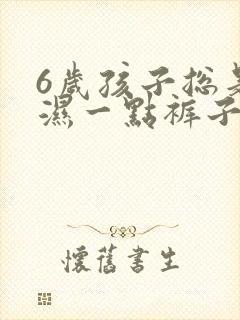 6歲孩子總是
濕一點褲子
懷舊書生